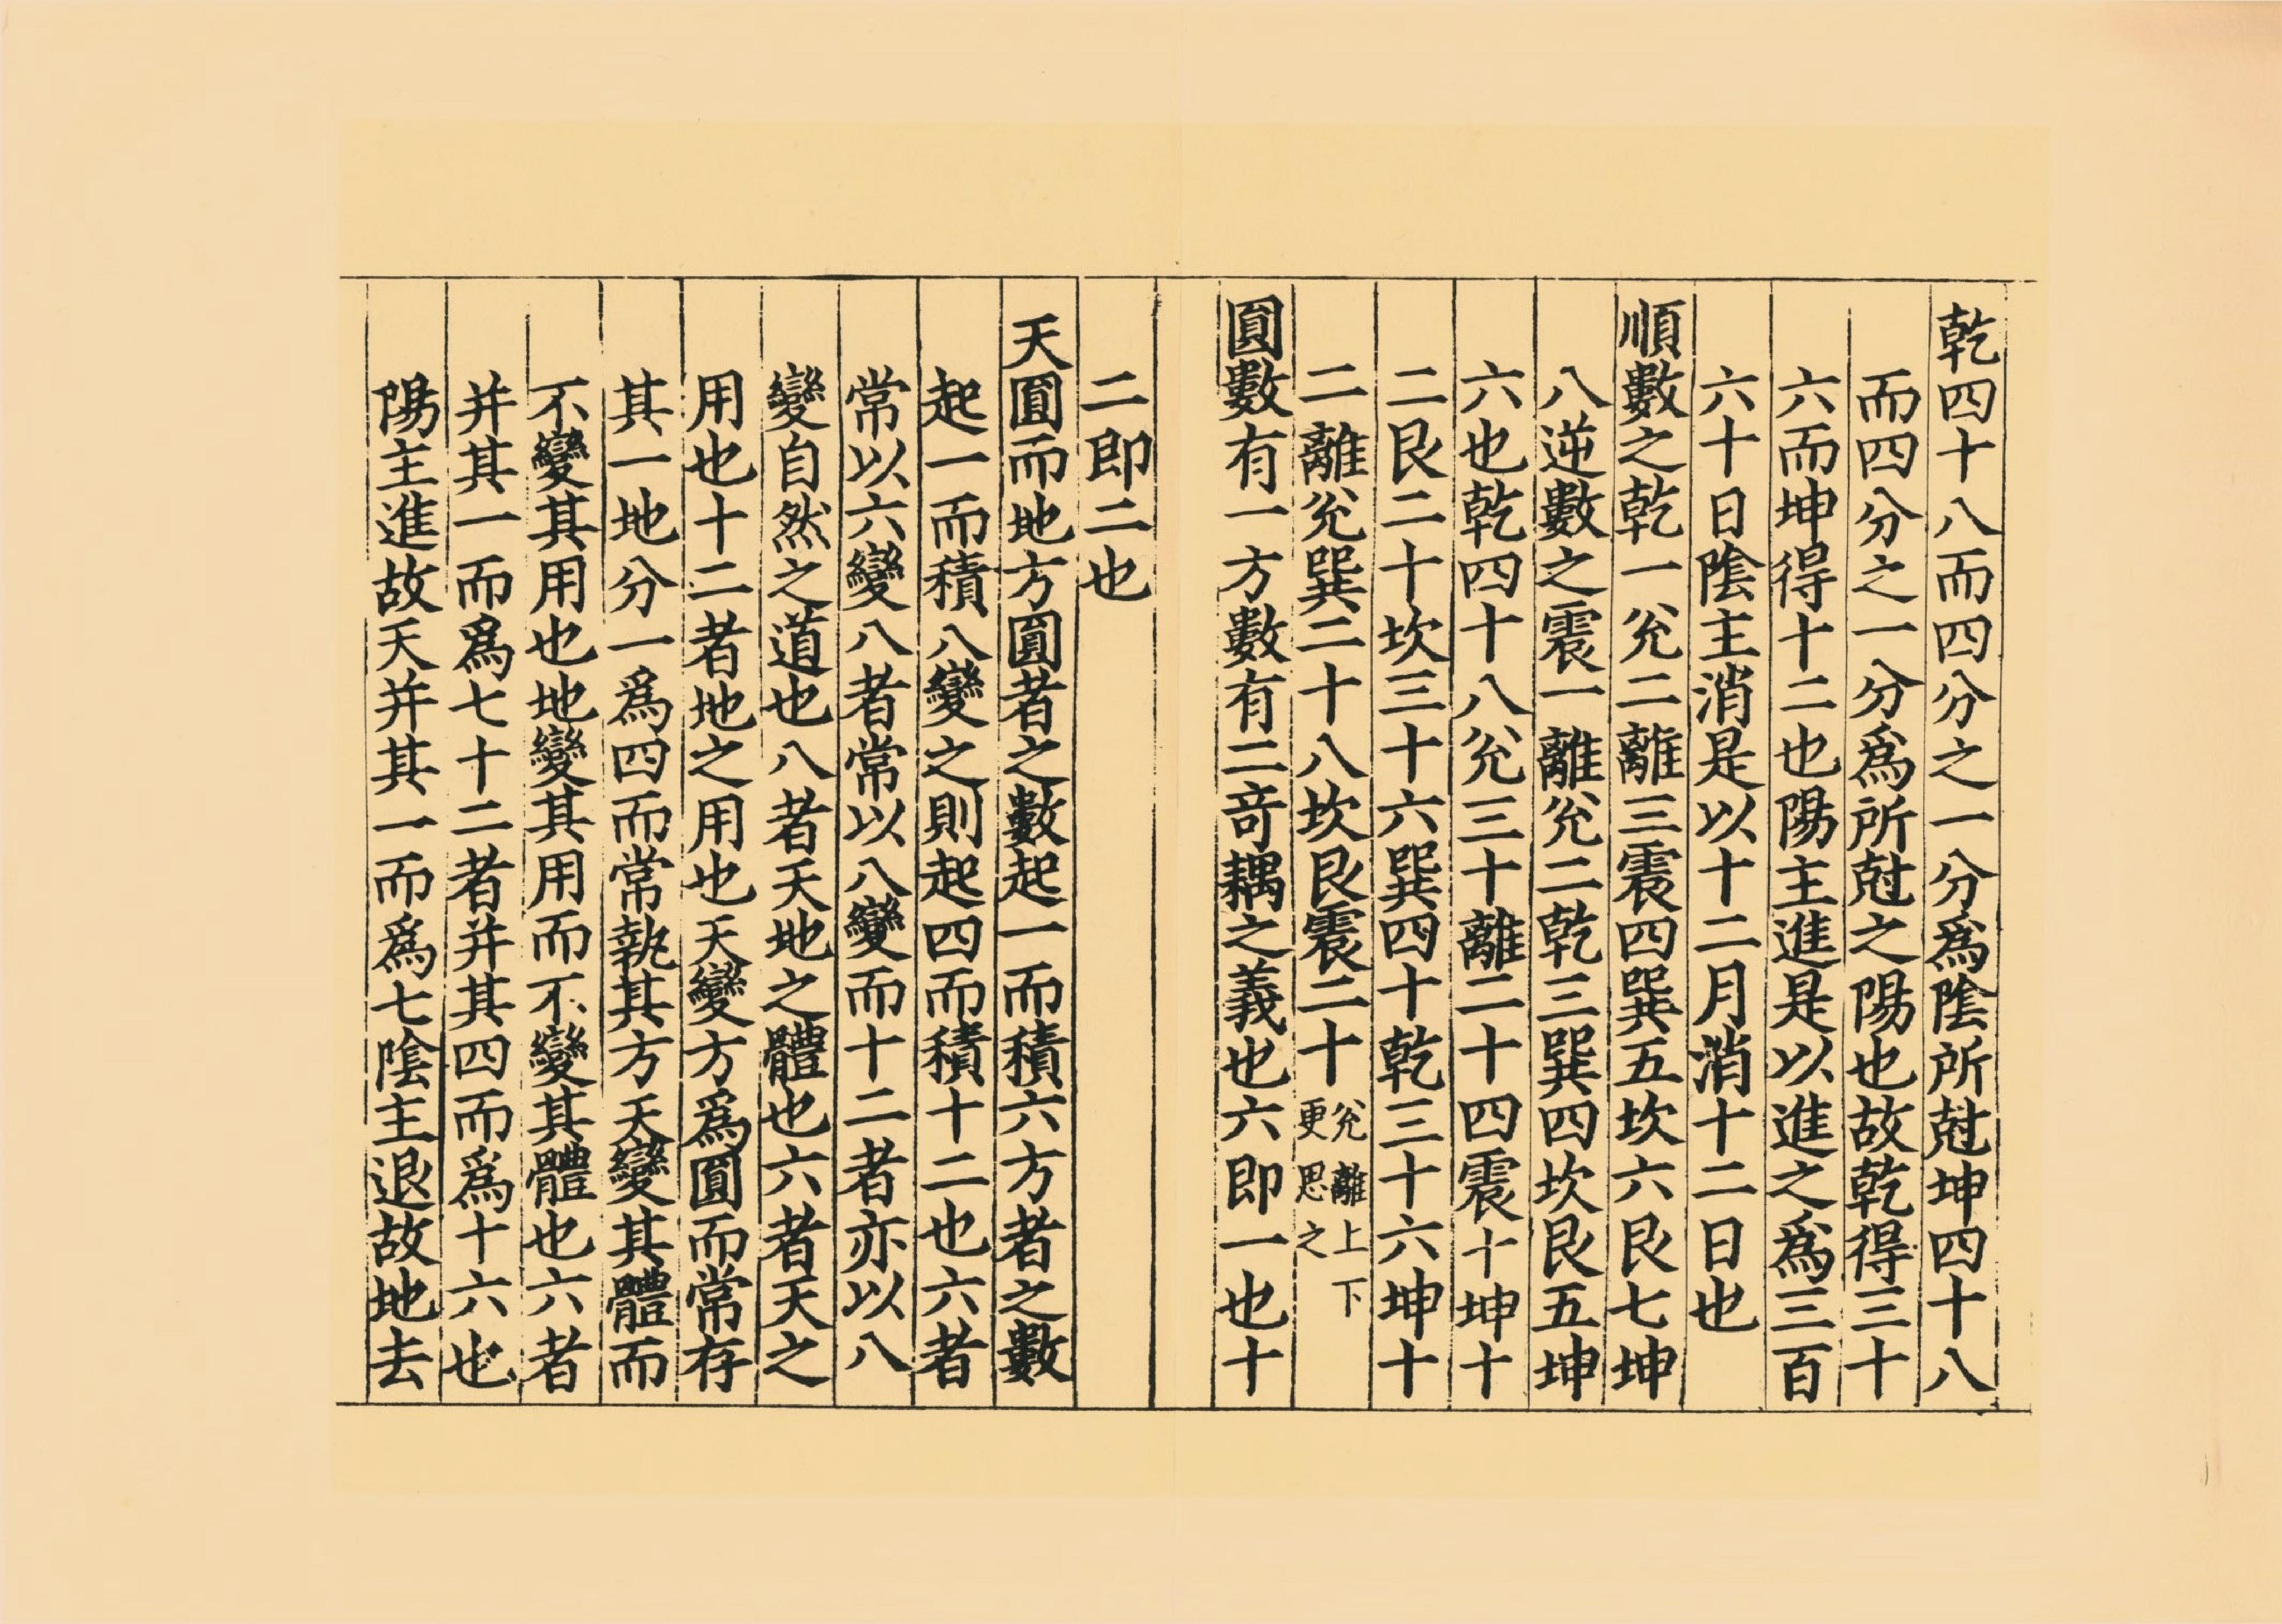 乾四十八而四分之一分爲陰所尅坤四十八
而四分之一分爲所尅之陽也故乾得三十
六而坤得十二也陽主進是以進之爲三百
六十日陰主消是以十二月消十二日也
順數之乾一兊二離三震四巽五坎六艮七坤
八逆數之震一離兊二乾三巽四坎艮五坤
六也乾四十八兊三十離二十四震十坤十
二艮二十坎三十六巽四十乾三十六坤十
二離兊巽二十八坎艮震二十兊離上下更思之
圓數有一方數有二竒耦之義也六即一也十
二即二也
天圓而地方圓者之數起一而積六方者之數
起一而積八變之則起四而積十二也六者
常以六變八者常以八變而十二者亦以八
變自然之道也八者天地之體也六者天之
用也十二者地之用也天變方爲圓而常存
其一地分一爲四而常執其方天變其體而
不變其用也地變其用而不變其體也六者
并其一而爲七十二者并其四而爲十六也
陽主進故天并其一而爲七陰主退故地去